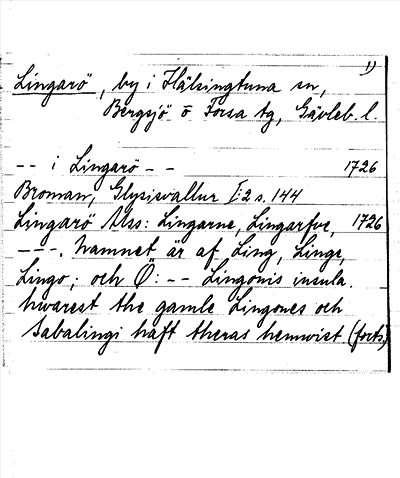 1)
Lingarö, by i Hälsingtuna sn,
Bergsjö o Forsa tg, Gävleb. l.
-- i Lingarö -- 1726
Broman, Glysisvallur I:2 s. 144
Lingarö Mss: Lingarne, Lingarfve, 1726
---. Namnet är af Ling, Linge,
Lingo; och Ö: -- Lingonis insula.
hwarest the gamle Lingones och
Sabalingi haft theras hemwist (forts)